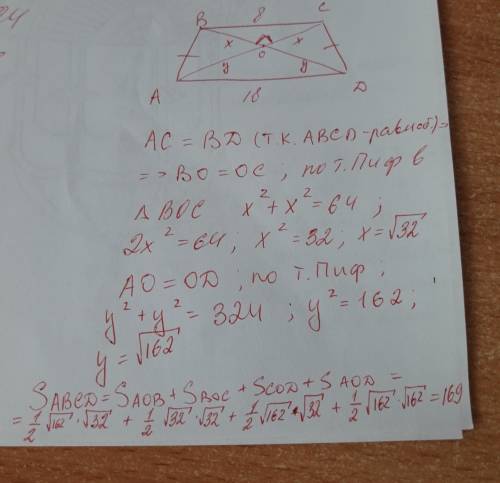 24
B 8 C
x x
O
y y
A D
18
AC = BD (т.к. ABCD-равноб)=>
=> BO = OC ; по т.Пиф в
△ BOC x² + x² = 64 ;
2x² = 64 ; x² = 32 ; x = √32
AO = OD ; по т.Пиф ;
y² + y² = 324 ; y² = 162 ;
y = √162
S ABCD = S AOB + S BOC + S COD + S AOD =
= 1/2 √162 · √32 + 1/2 √32 · √32 + 1/2 √162 · √32 + 1/2 √162 · √162 = 169